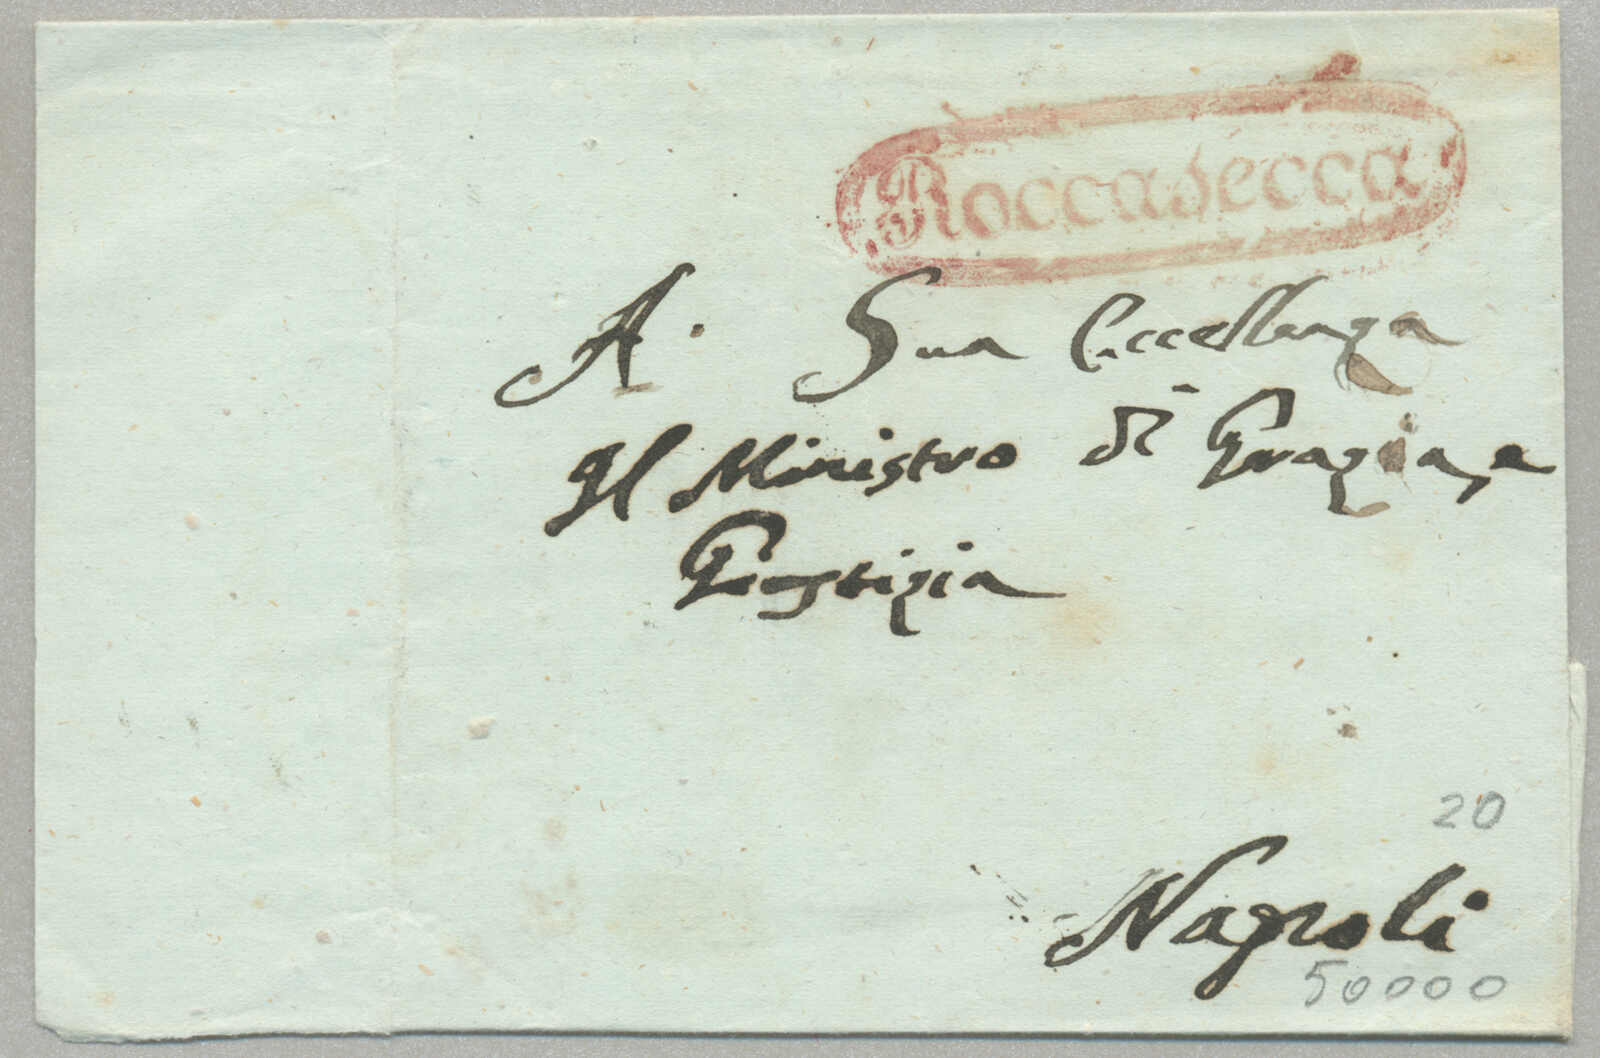 Roccasecca
A. Sua Eccellenza
Il Ministro di Grazia, e
Giustizia
20
Napoli
50000